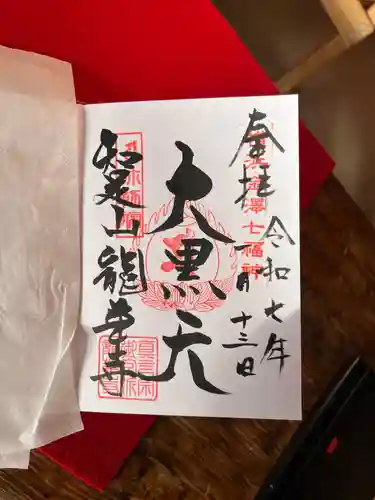 奉拝
令和七年
一月十三日
金澤七福神
大黒天
知足山龍華寺